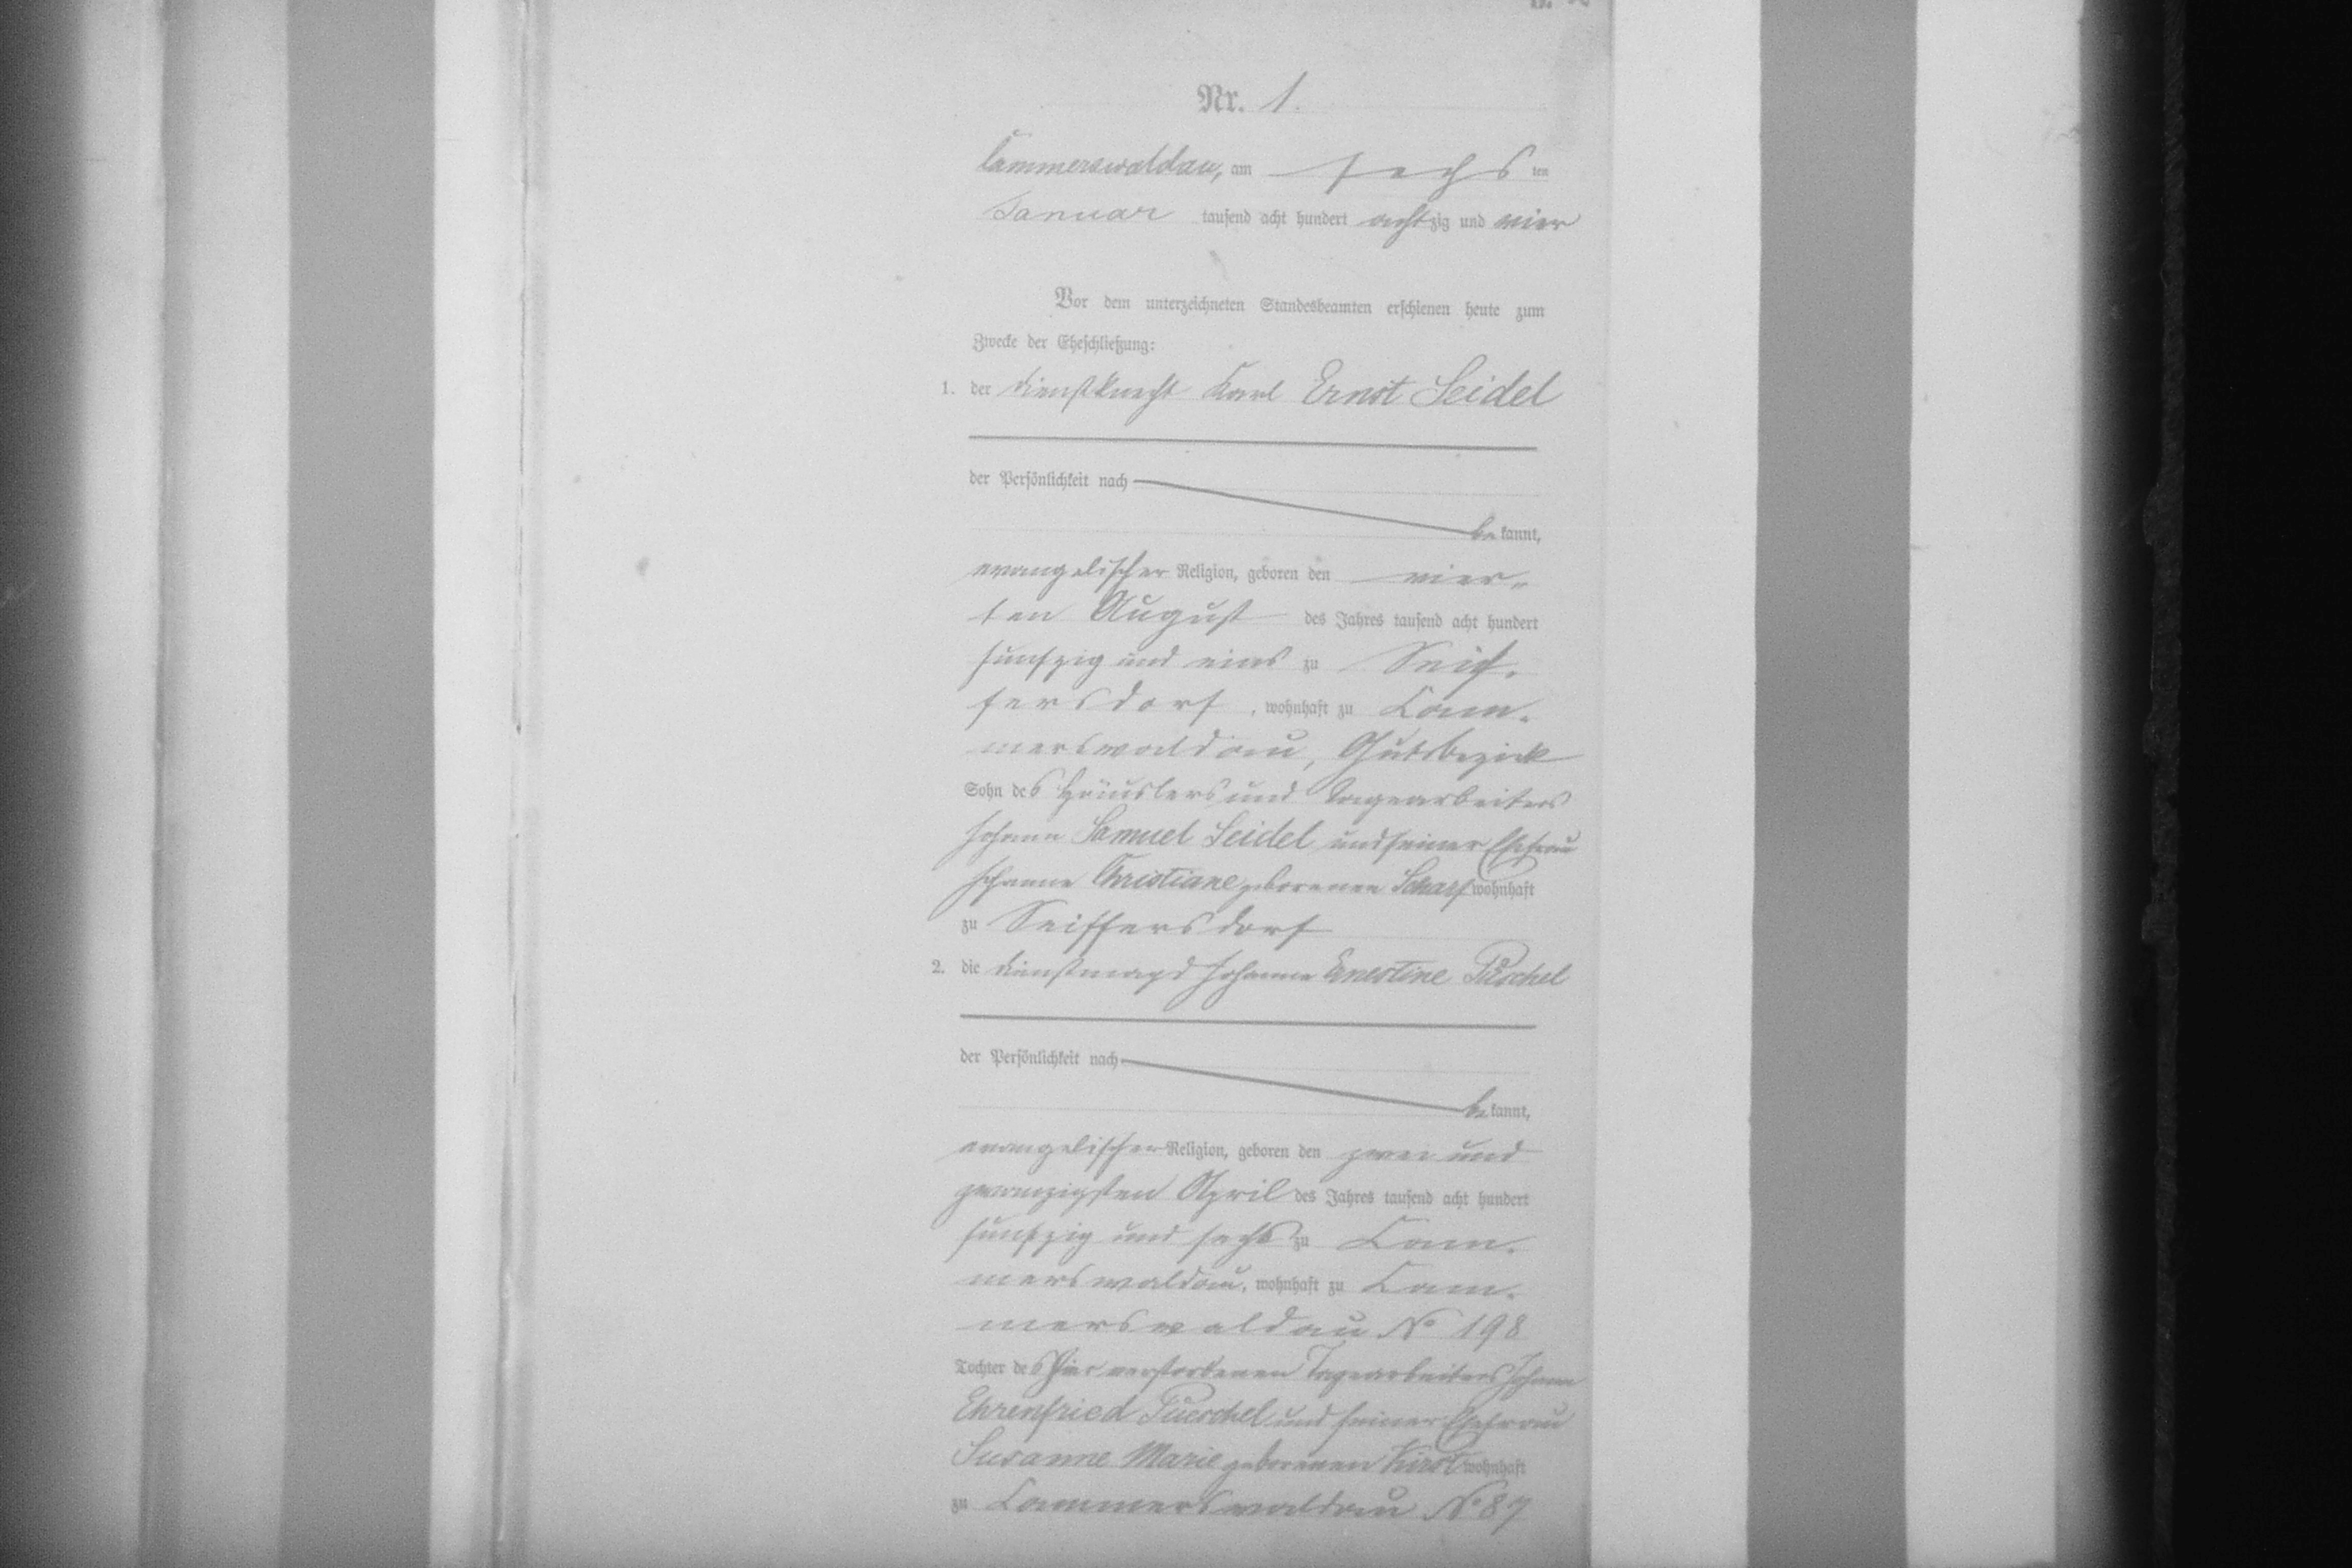 Nr. 1.
Cammerswaldau, am sechs ten
Januar tausend acht hundert achtzig und vier
Vor dem unterzeichneten Standesbeamten erschienen heute zum
Zwecke der Eheschließung:
1. der Dienstknecht Karl Ernst Seidel
der Persönlichkeit nach
bekannt,
evangelischer Religion, geboren den vier-
ten August des Jahres tausend acht hundert
funfzig und eins zu Seif-
fersdorf, wohnhaft zu Cam-
merswaldau, Gutsbezirk
Sohn des Häuslers und Tagearbeiters
Johann Samuel Seidel und seiner Ehefrau
Johanne Christiane geborenen Scharf wohnhaft
zu Seiffersdorf
2. die Dienstmagd Johanne Ernestine Püschel
der Persönlichkeit nach
bekannt,
evangelischer Religion, geboren den zwei und
zwanzigsten April des Jahres tausend acht hundert
funfzig und sechs zu Cam-
merswaldau, wohnhaft zu Cam-
merswaldau No 198
Tochter des hier verstorbenen Tagearbeiters Johann
Ehrenfried Püschel und seiner Ehefrau
Susanne Marie geborenen Hirst wohnhaft
zu Cammerswaldau No 87